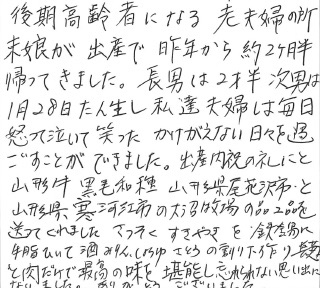 後期高齢者になる 老夫婦の所
末娘が 出産で 昨年から 約2ヶ月半
帰ってきました。長男は2才半 次男は
1月28日たん生し 私達夫婦は毎日
怒って泣いて笑った かけがえない日々を過
ごすことができました。出産内祝の礼にと
山形牛 黒毛和種 山形県尾花沢市と
山形県寒河江市の大沼牧場の品2品を
送ってくれました さっそく すきやきを
牛脂ひいて 酒 みりん しょうゆ さとうの割り下作り
と肉だけで最高の味を堪能し忘れられない思い出に
なりました。ありがとうございました